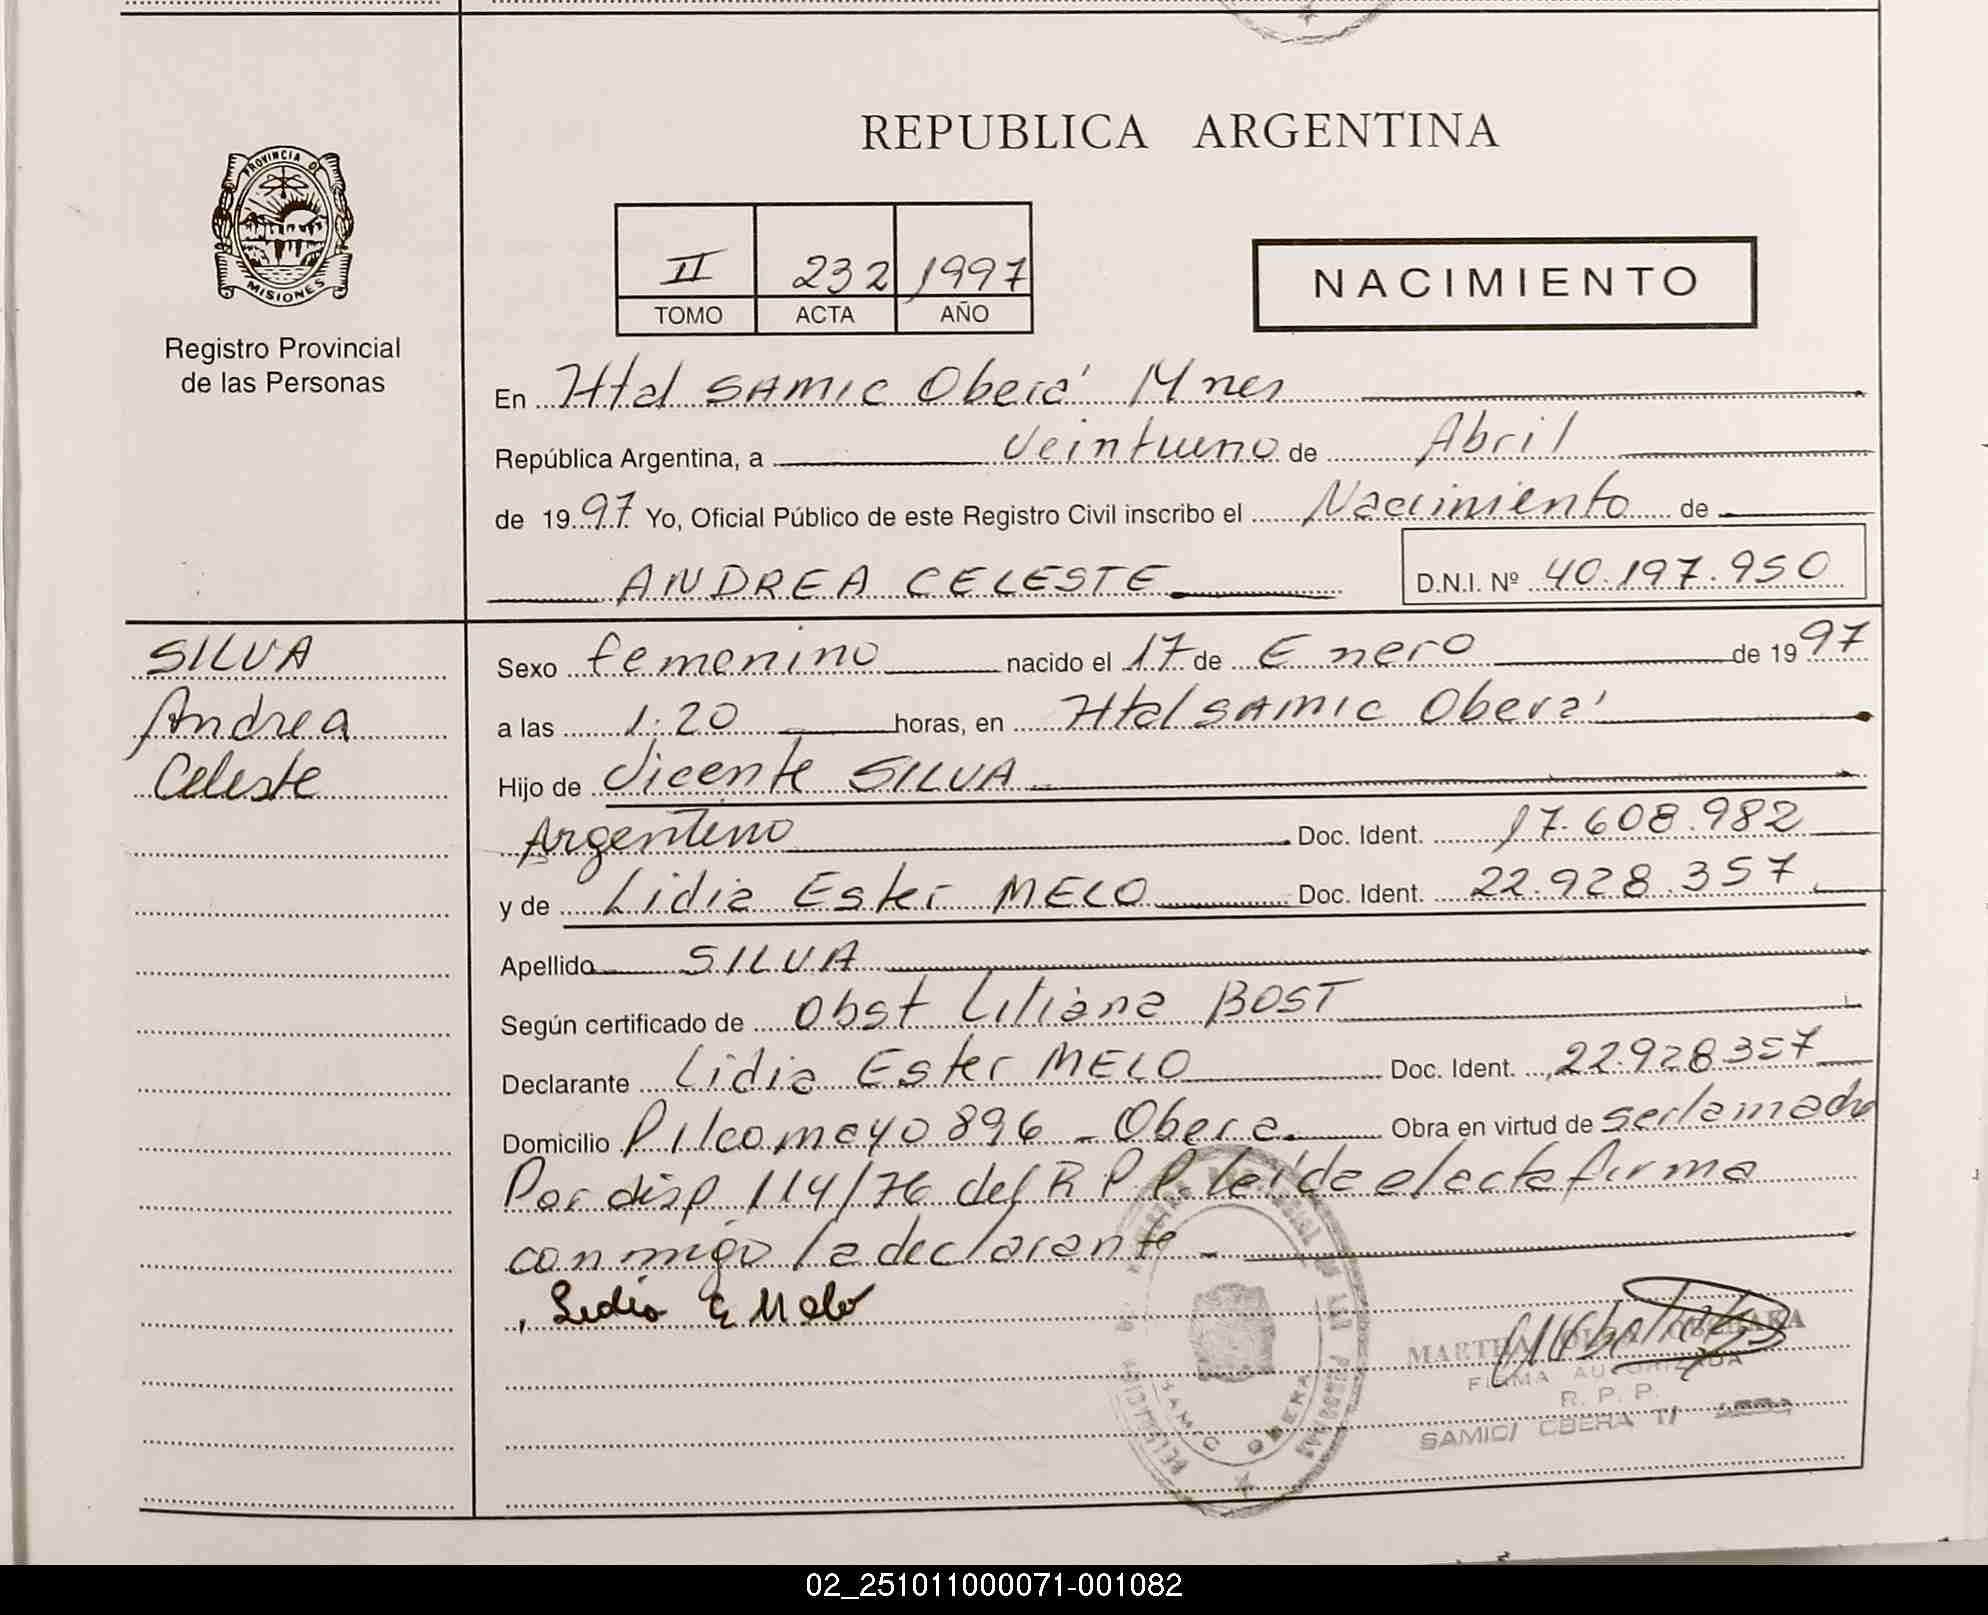 REPUBLICA ARGENTINA
PROVINCIA DE
MISIONES
Registro Provincial
de las Personas
II 232 1997
TOMO ACTA AÑO
NACIMIENTO
En Htal SAMIC Oberá Mnes
República Argentina, a Veintiuno de Abril
de 1997 Yo, Oficial Público de este Registro Civil inscribo el Nacimiento de
ANDREA CELESTE D.N.I. Nº 40.197.950
SILVA
Andrea
Celeste
Sexo femenino nacido el 17 de Enero de 1997
a las 1:20 horas, en Htal SAMIC Oberá
Hijo de Vicente SILVA
Argentino Doc. Ident. 17.608.982
y de Lidia Ester MELO Doc. Ident. 22.928.357
Apellido SILVA
Según certificado de Obst Liliana BOST
Declarante Lidia Ester MELO Doc. Ident. 22.928.357
Domicilio Pilcomayo 896 - Obera Obra en virtud de ser la madre
Por disp 114/76 del R P P leída el acta firma
conmigo la declarante -
Lidia E Melo
SAMIC OBERA
MARTHA
FIRMA AUTORIZADA
R. P. P.
SAMIC/ OBERA
02_251011000071-001082